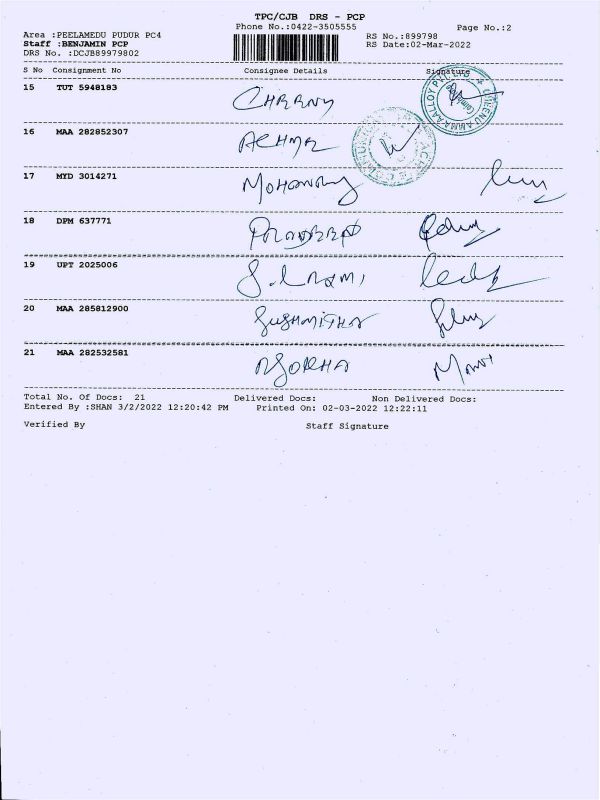 TPC/CJB DRS - PCP
Phone No.:0422-3505555
Page No.:2
Area :PEELAMEDU PUDUR PC4
RS No.:899798
Staff :BENJAMIN PCP
RS Date:02-Mar-2022
DRS No. :DCJB89979802
S No Consignment No Consignee Details Signature
15 TUT 5948183
16 MAA 282852307
17 MYD 3014271
18 DPM 637771
19 UPT 2025006
20 MAA 285812900 SUSHMITHA
21 MAA 282532581
Total No. Of Docs: 21 Delivered Docs: Non Delivered Docs:
Entered By :SHAN 3/2/2022 12:20:42 PM Printed On: 02-03-2022 12:22:11
Verified By Staff Signature